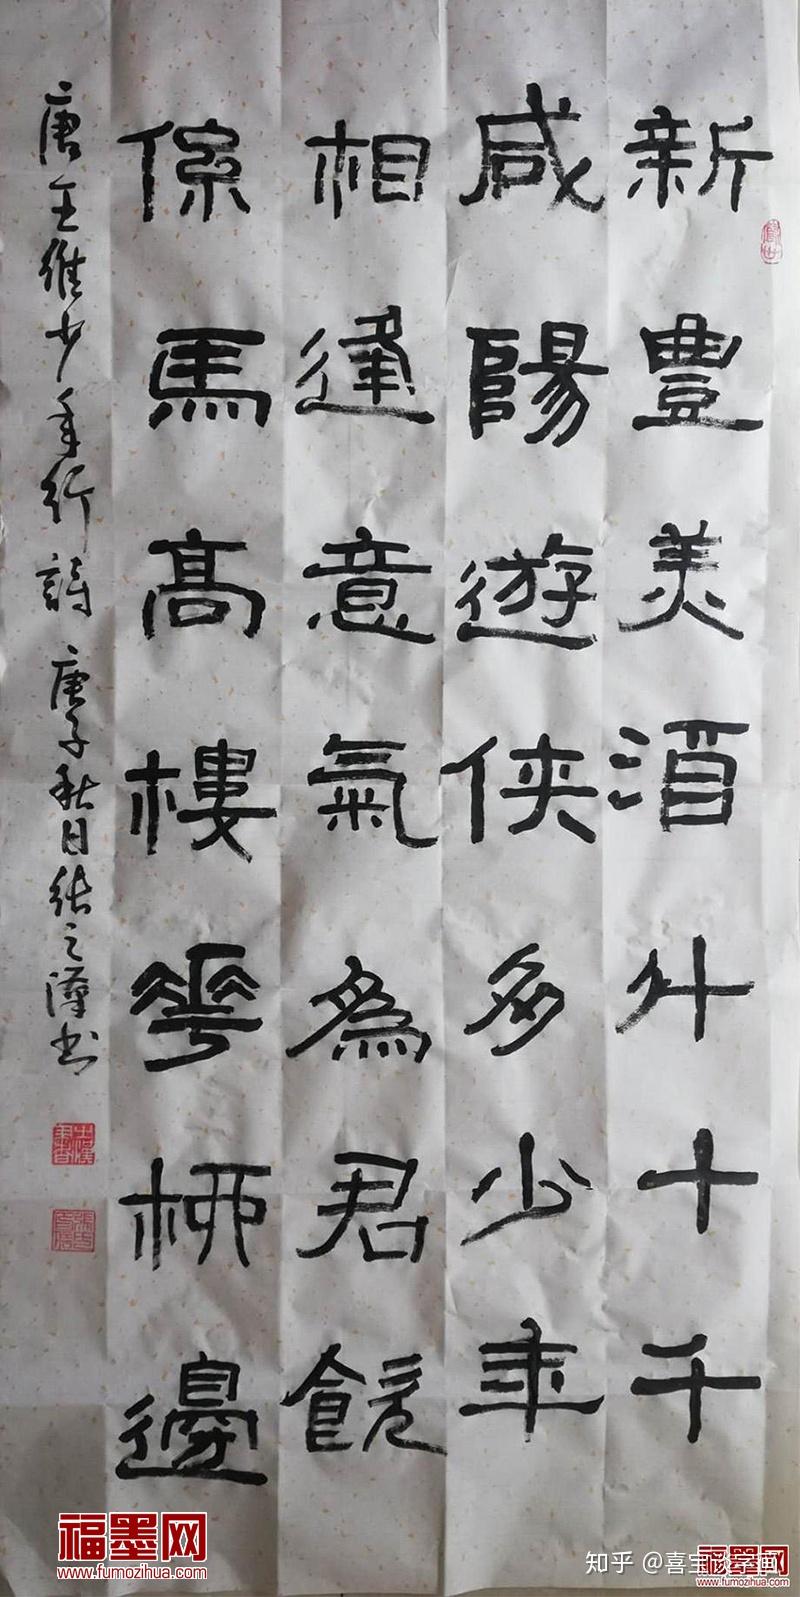 新豐美酒斗十千
咸陽遊俠多少年
相逢意氣為君飲
係馬高樓垂柳邊
唐王維少年行詩 庚子秋日張之漢書
福墨网
www.fumozihua.com
知乎 @喜宝谈字画
福墨网
www.fumozihua.com